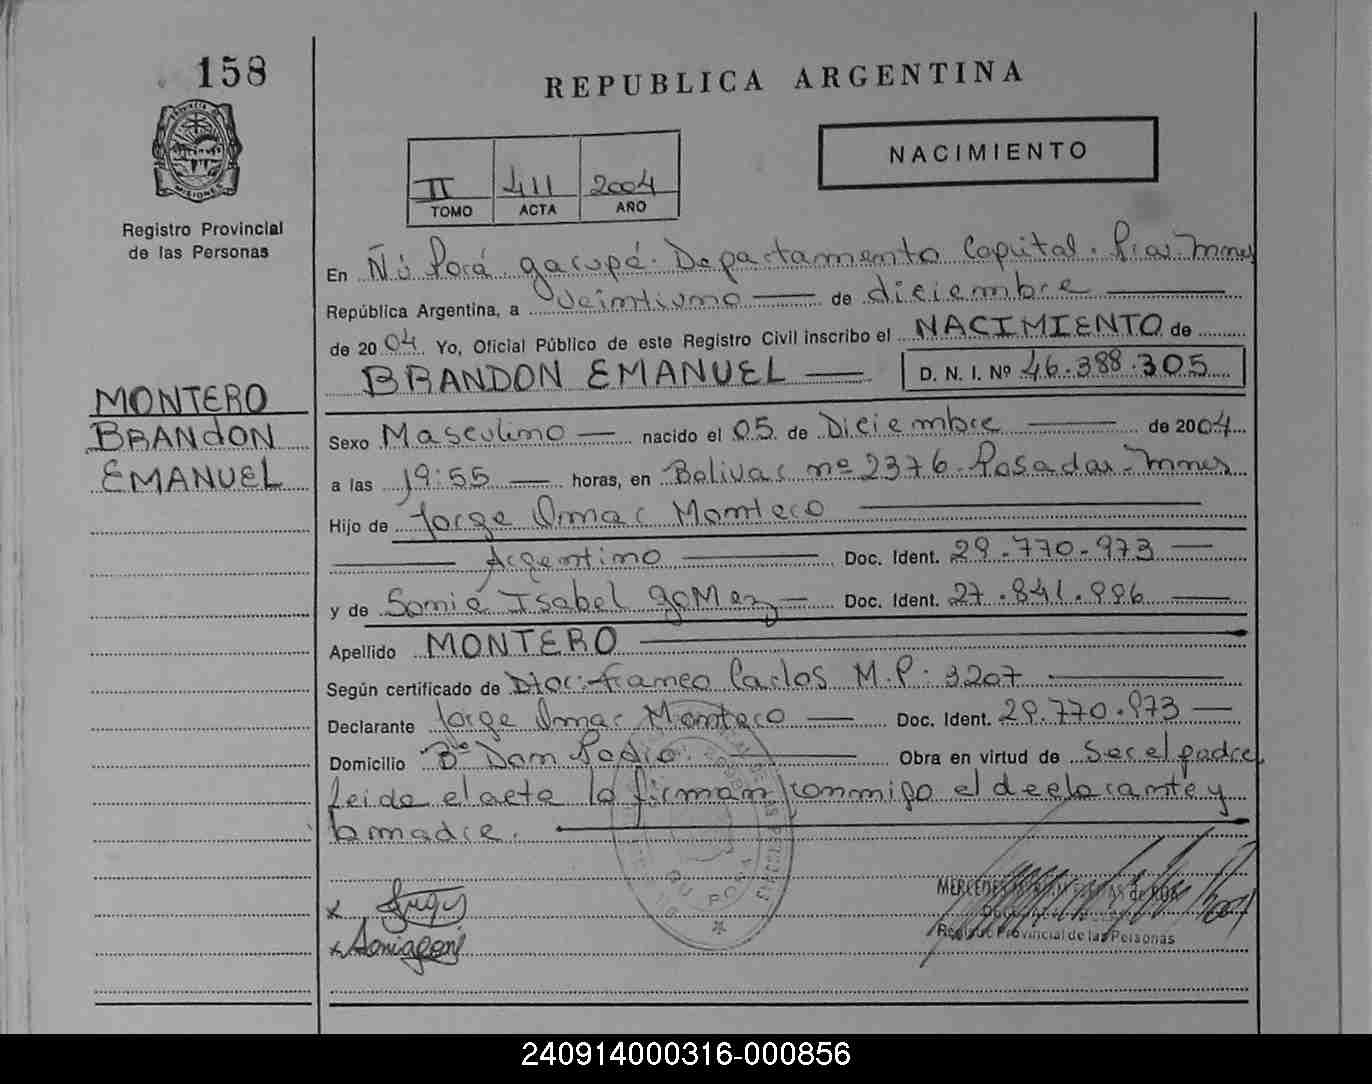 158
REPUBLICA ARGENTINA
PROVINCIA DE MISIONES
Registro Provincial
de las Personas
II 411 2004
TOMO ACTA AÑO
NACIMIENTO
En Ñú Porá garupá. Departamento Capital. Pdas. Mnes
República Argentina, a Veintiuno de diciembre
de 2004 Yo, Oficial Público de este Registro Civil inscribo el NACIMIENTO de
BRANDON EMANUEL D. N. I. Nº 46.388.305
MONTERO
BRANdON
EMANUEL
Sexo Masculino nacido el 05 de Diciembre de 2004
a las 19:55 horas, en Bolivar nº 2376. Posadas-Mnes
Hijo de Jorge Omar Montero
Argentino Doc. Ident. 29.770.973
y de Sonia Isabel goMez Doc. Ident. 27.841.996
Apellido MONTERO
Según certificado de Dtor: Carlos M.P. 3207
Declarante Jorge Omar Montero Doc. Ident. 29.770.973
Domicilio Bº Dom Pedro Obra en virtud de Ser el padre
leida el acta la firman conmigo el declarante y
la madre.
x
x
ÑU PORA
MERCEDES de
Registro Provincial de las Personas
240914000316-000856